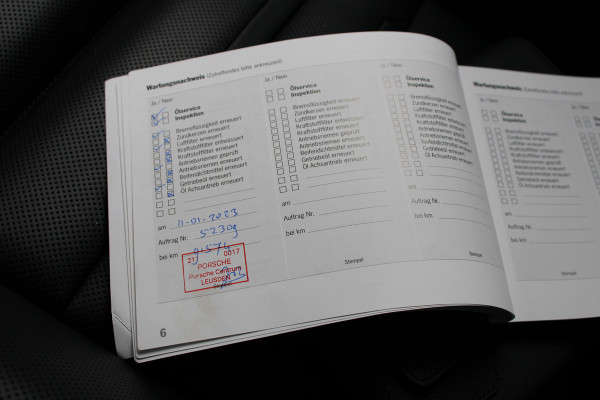 Wartungsnachweis (Zutreffendes bitte ankreuzen)
Ja / Nein
Ölservice
Inspektion
Bremsflüssigkeit erneuert
Zündkerzen erneuert
Luftfilter erneuert
Kraftstofffilter entwässert
Kraftstofffilter erneuert
Antriebsriemen geprüft
Antriebsriemen erneuert
Reifendichtmittel erneuert
Getriebeöl erneuert
Öl Achsantrieb erneuert
am 11-01-2023
Auftrag Nr. 52309
bei km 9.574
21 0017
PORSCHE
Porsche Centrum
LEUSDEN
Stempel
6
Ja / Nein
Ölservice
Inspektion
Bremsflüssigkeit erneuert
Zündkerzen erneuert
Luftfilter erneuert
Kraftstofffilter entwässert
Kraftstofffilter erneuert
Antriebsriemen geprüft
Antriebsriemen erneuert
Reifendichtmittel erneuert
Getriebeöl erneuert
Öl Achsantrieb erneuert
am
Auftrag Nr.
bei km
Stempel
Ja / Nein
Ölservice
Inspektion
Bremsflüssigkeit erneuert
Zündkerzen erneuert
Luftfilter erneuert
Kraftstofffilter entwässert
Kraftstofffilter erneuert
Antriebsriemen geprüft
Antriebsriemen erneuert
Reifendichtmittel erneuert
Getriebeöl erneuert
Öl Achsantrieb erneuert
am
Auftrag Nr.
bei km
Stempel
Wartungsnachweis (Zutreffendes bitte ankreuzen)
Ja / Nein
Ölservice
Inspektion
Bremsflüssigkeit erneuert
Zündkerzen erneuert
Luftfilter erneuert
Kraftstofffilter entwässert
Kraftstofffilter erneuert
Antriebsriemen geprüft
Antriebsriemen erneuert
Reifendichtmittel erneuert
Getriebeöl erneuert
Öl Achsantrieb erneuert
am
Auftrag Nr.
bei km
Stempel